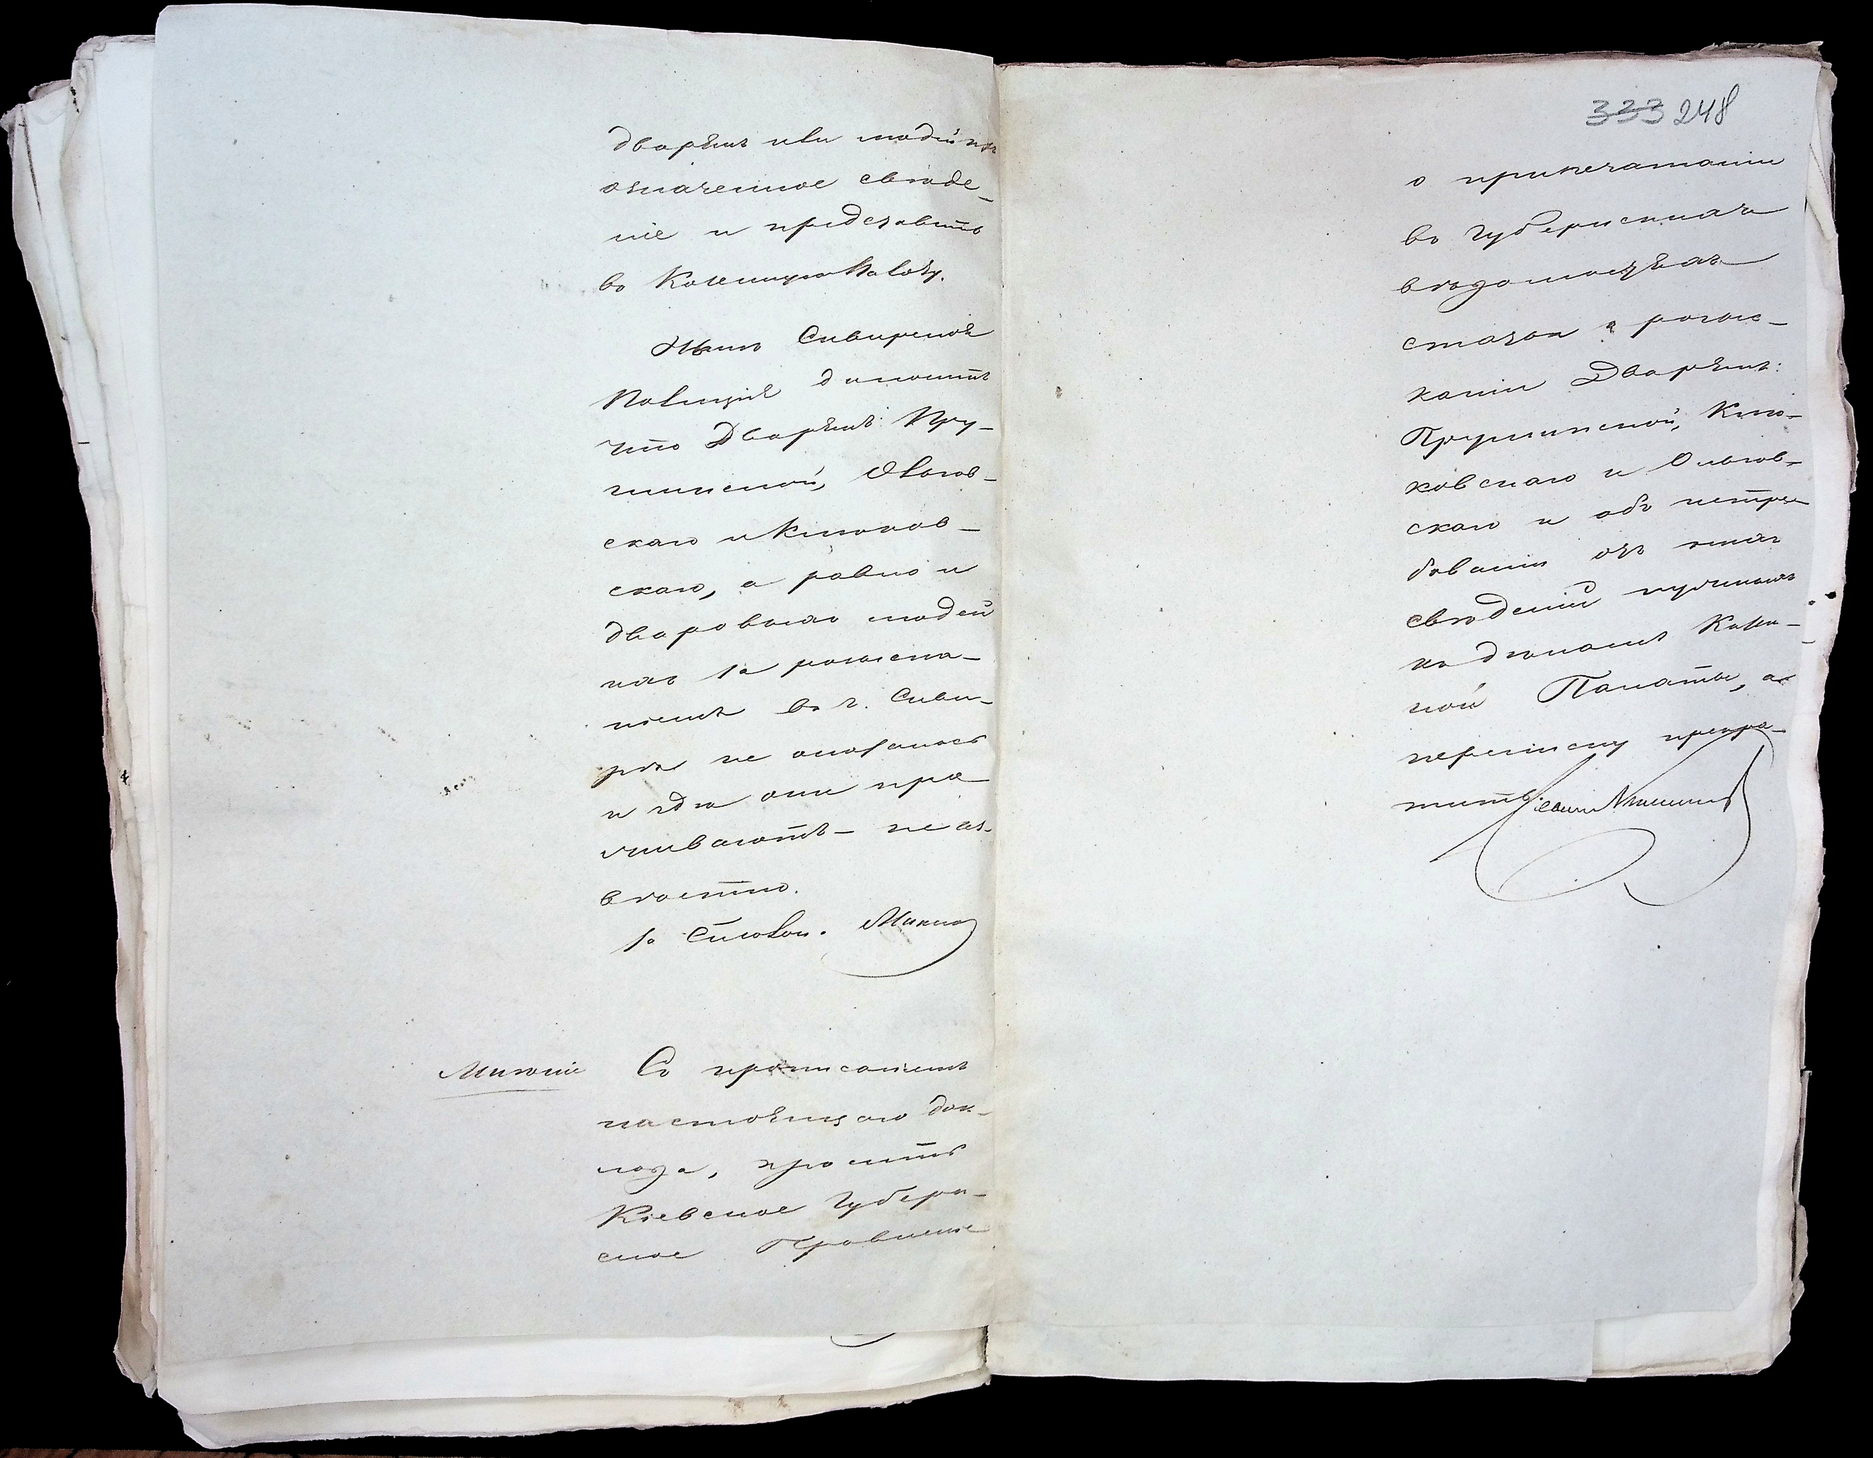 дворянъ или людей ихъ
означенное сведе-
ніе и представить
въ Казенную Палату.
Нынѣ Сквирская
Полиція доноситъ
что Дворянъ: Пру-
шинской, Ольхов-
скаго и Клюков-
скаго, а равно и
дворовыхъ людей
ихъ по розыска-
ніямъ въ г. Скви-
рѣ не оказалось
и гдѣ они про-
живаютъ – не из-
вѣстно.
Столон.
Мнѣніе
Съ прописаніемъ
настоящаго док-
лада, просить
Кіевское Губерн-
ское Правленіе
333 248
о припечатаніи
въ Губернскихъ
вѣдомостяхъ
статьи о розыс-
каніи Дворянъ:
Прушинской, Клю-
ковскаго и Ольхов-
скаго и объ истре-
бованіи отъ нихъ
свѣдений нужныхъ
къ дѣламъ Казен-
ной Палаты, а
переписку прекра-
тить.